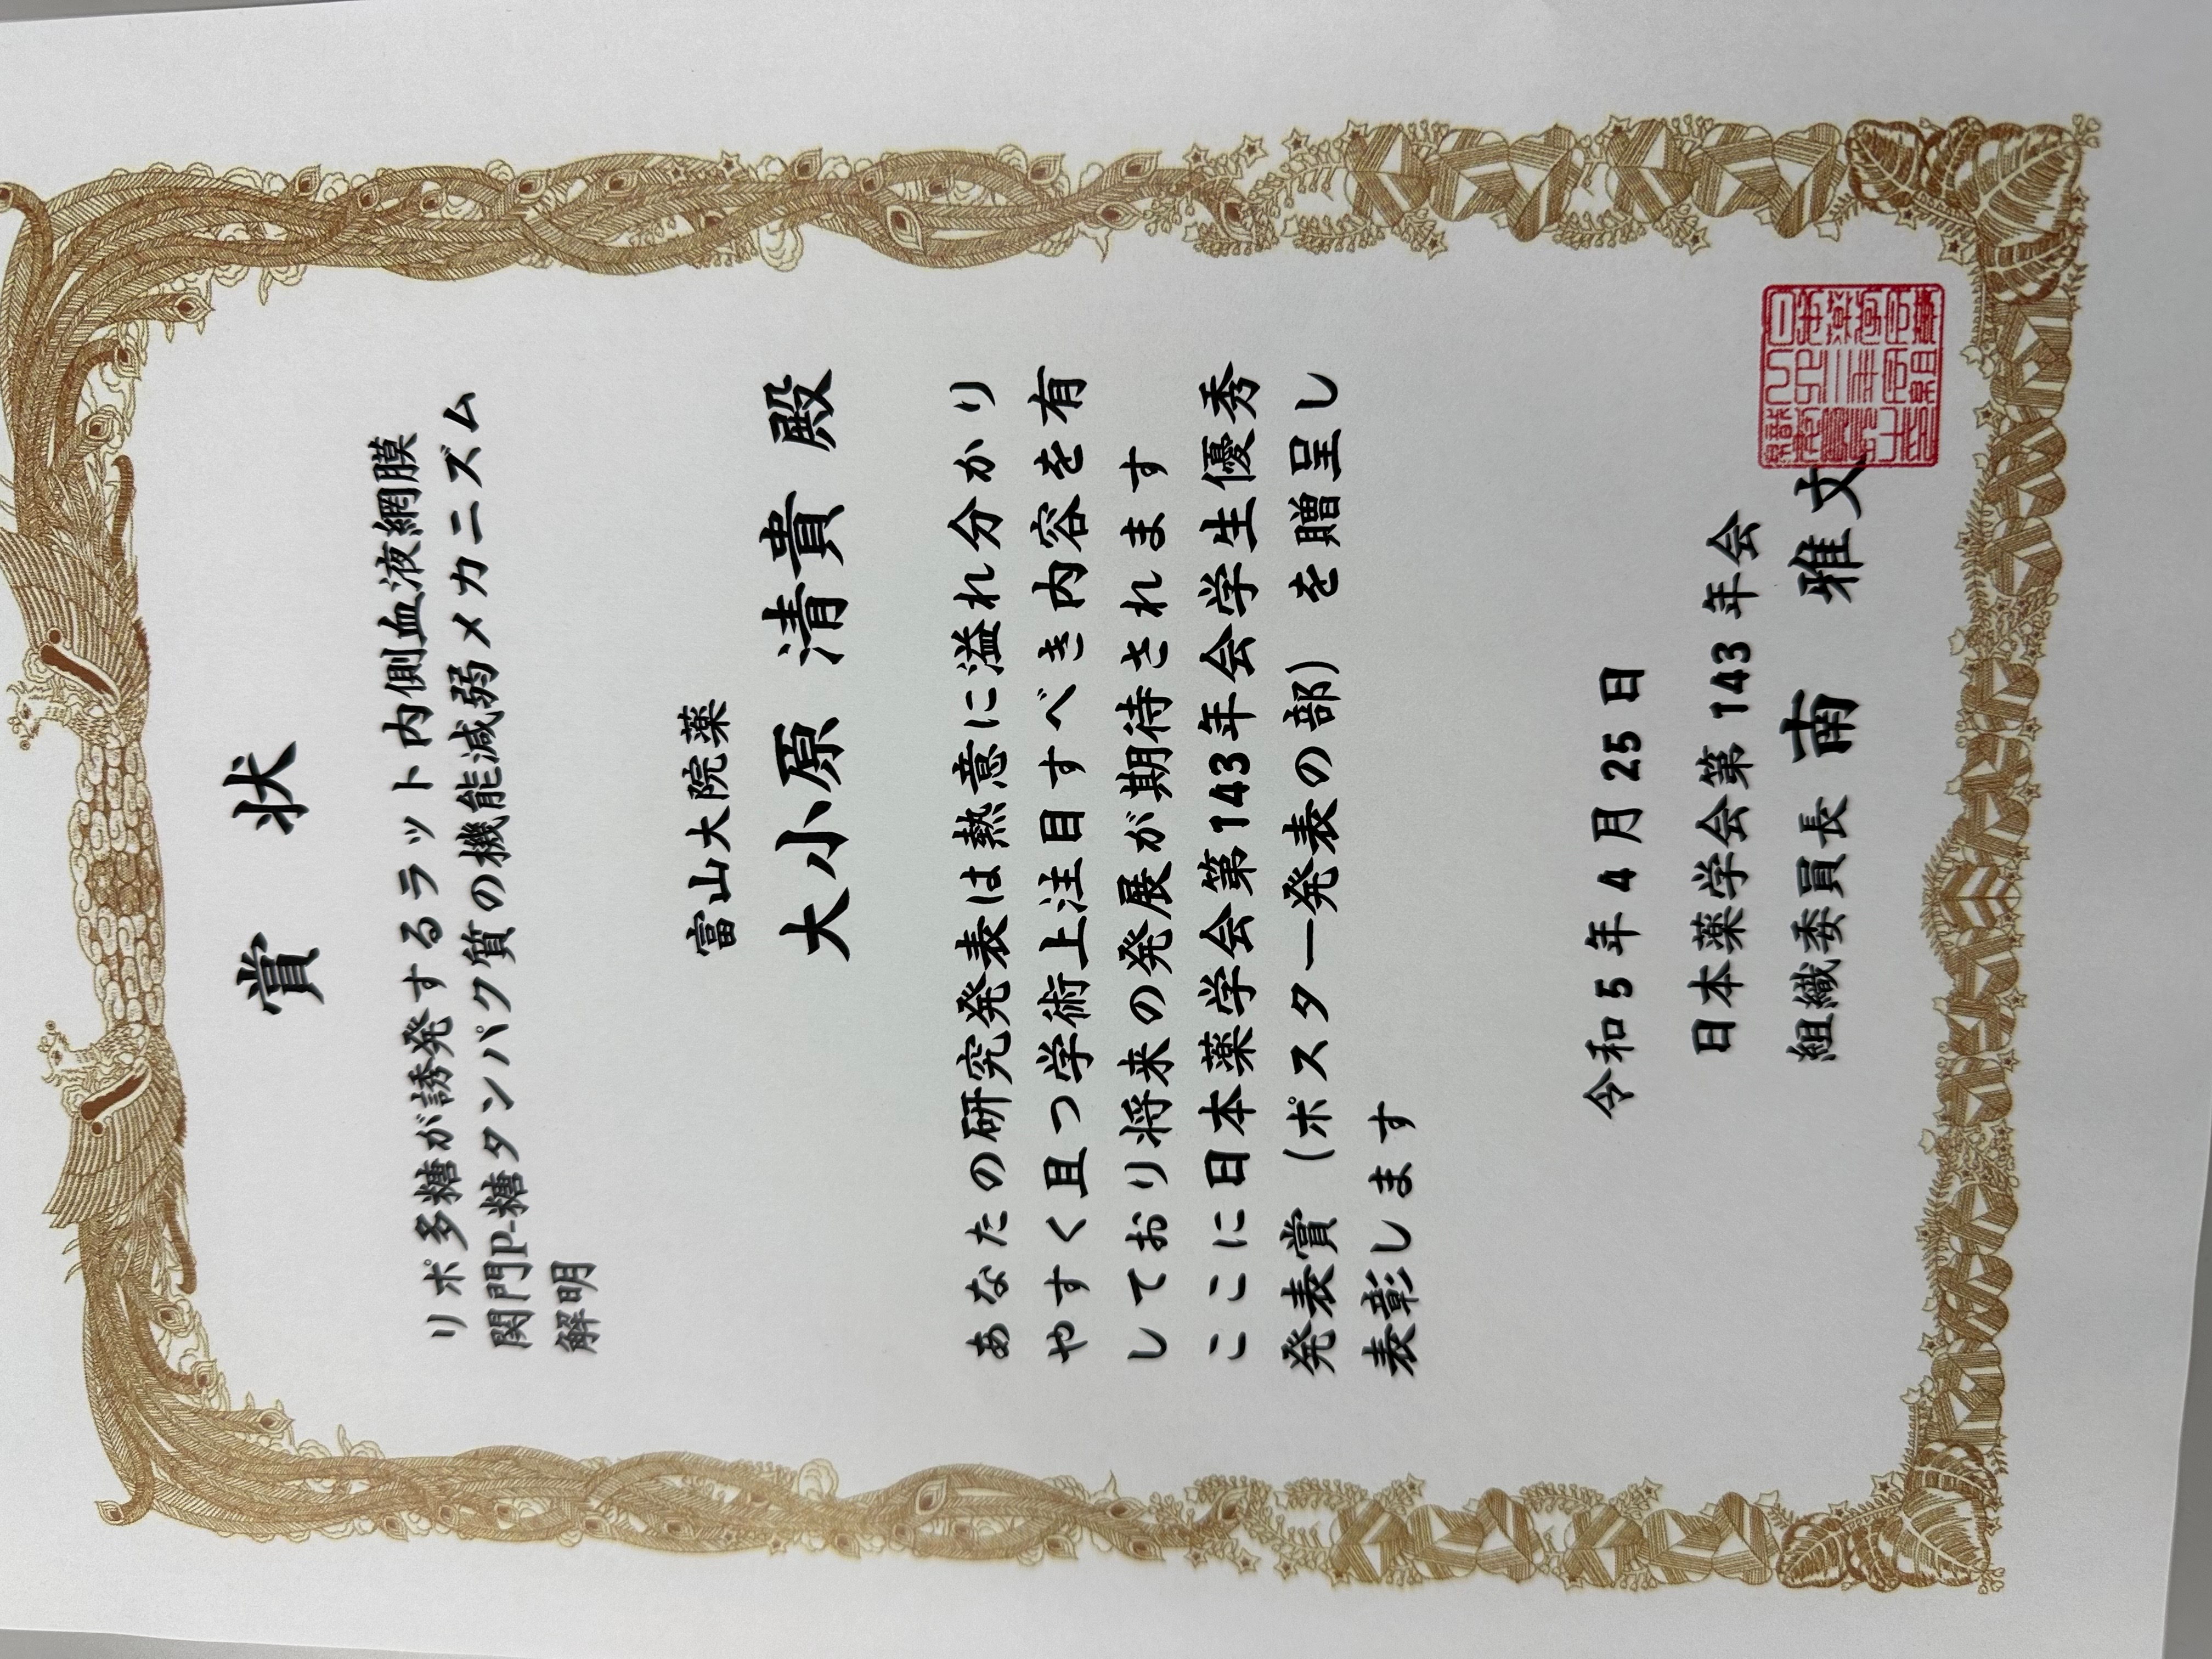 賞状
リポ多糖が誘発するラット内側血液網膜
関門P-糖タンパク質の機能減弱メカニズム
解明
富山大院薬
大小原 清貴 殿
あなたの研究発表は熱意に溢れ分かり
やすく且つ学術上注目すべき内容を有
しており将来の発展が期待されます
ここに日本薬学会第143年会学生優秀
発表賞（ポスター発表の部）を贈呈し
表彰します
令和5年4月25日
日本薬学会第143年会
組織委員長 南 雅文